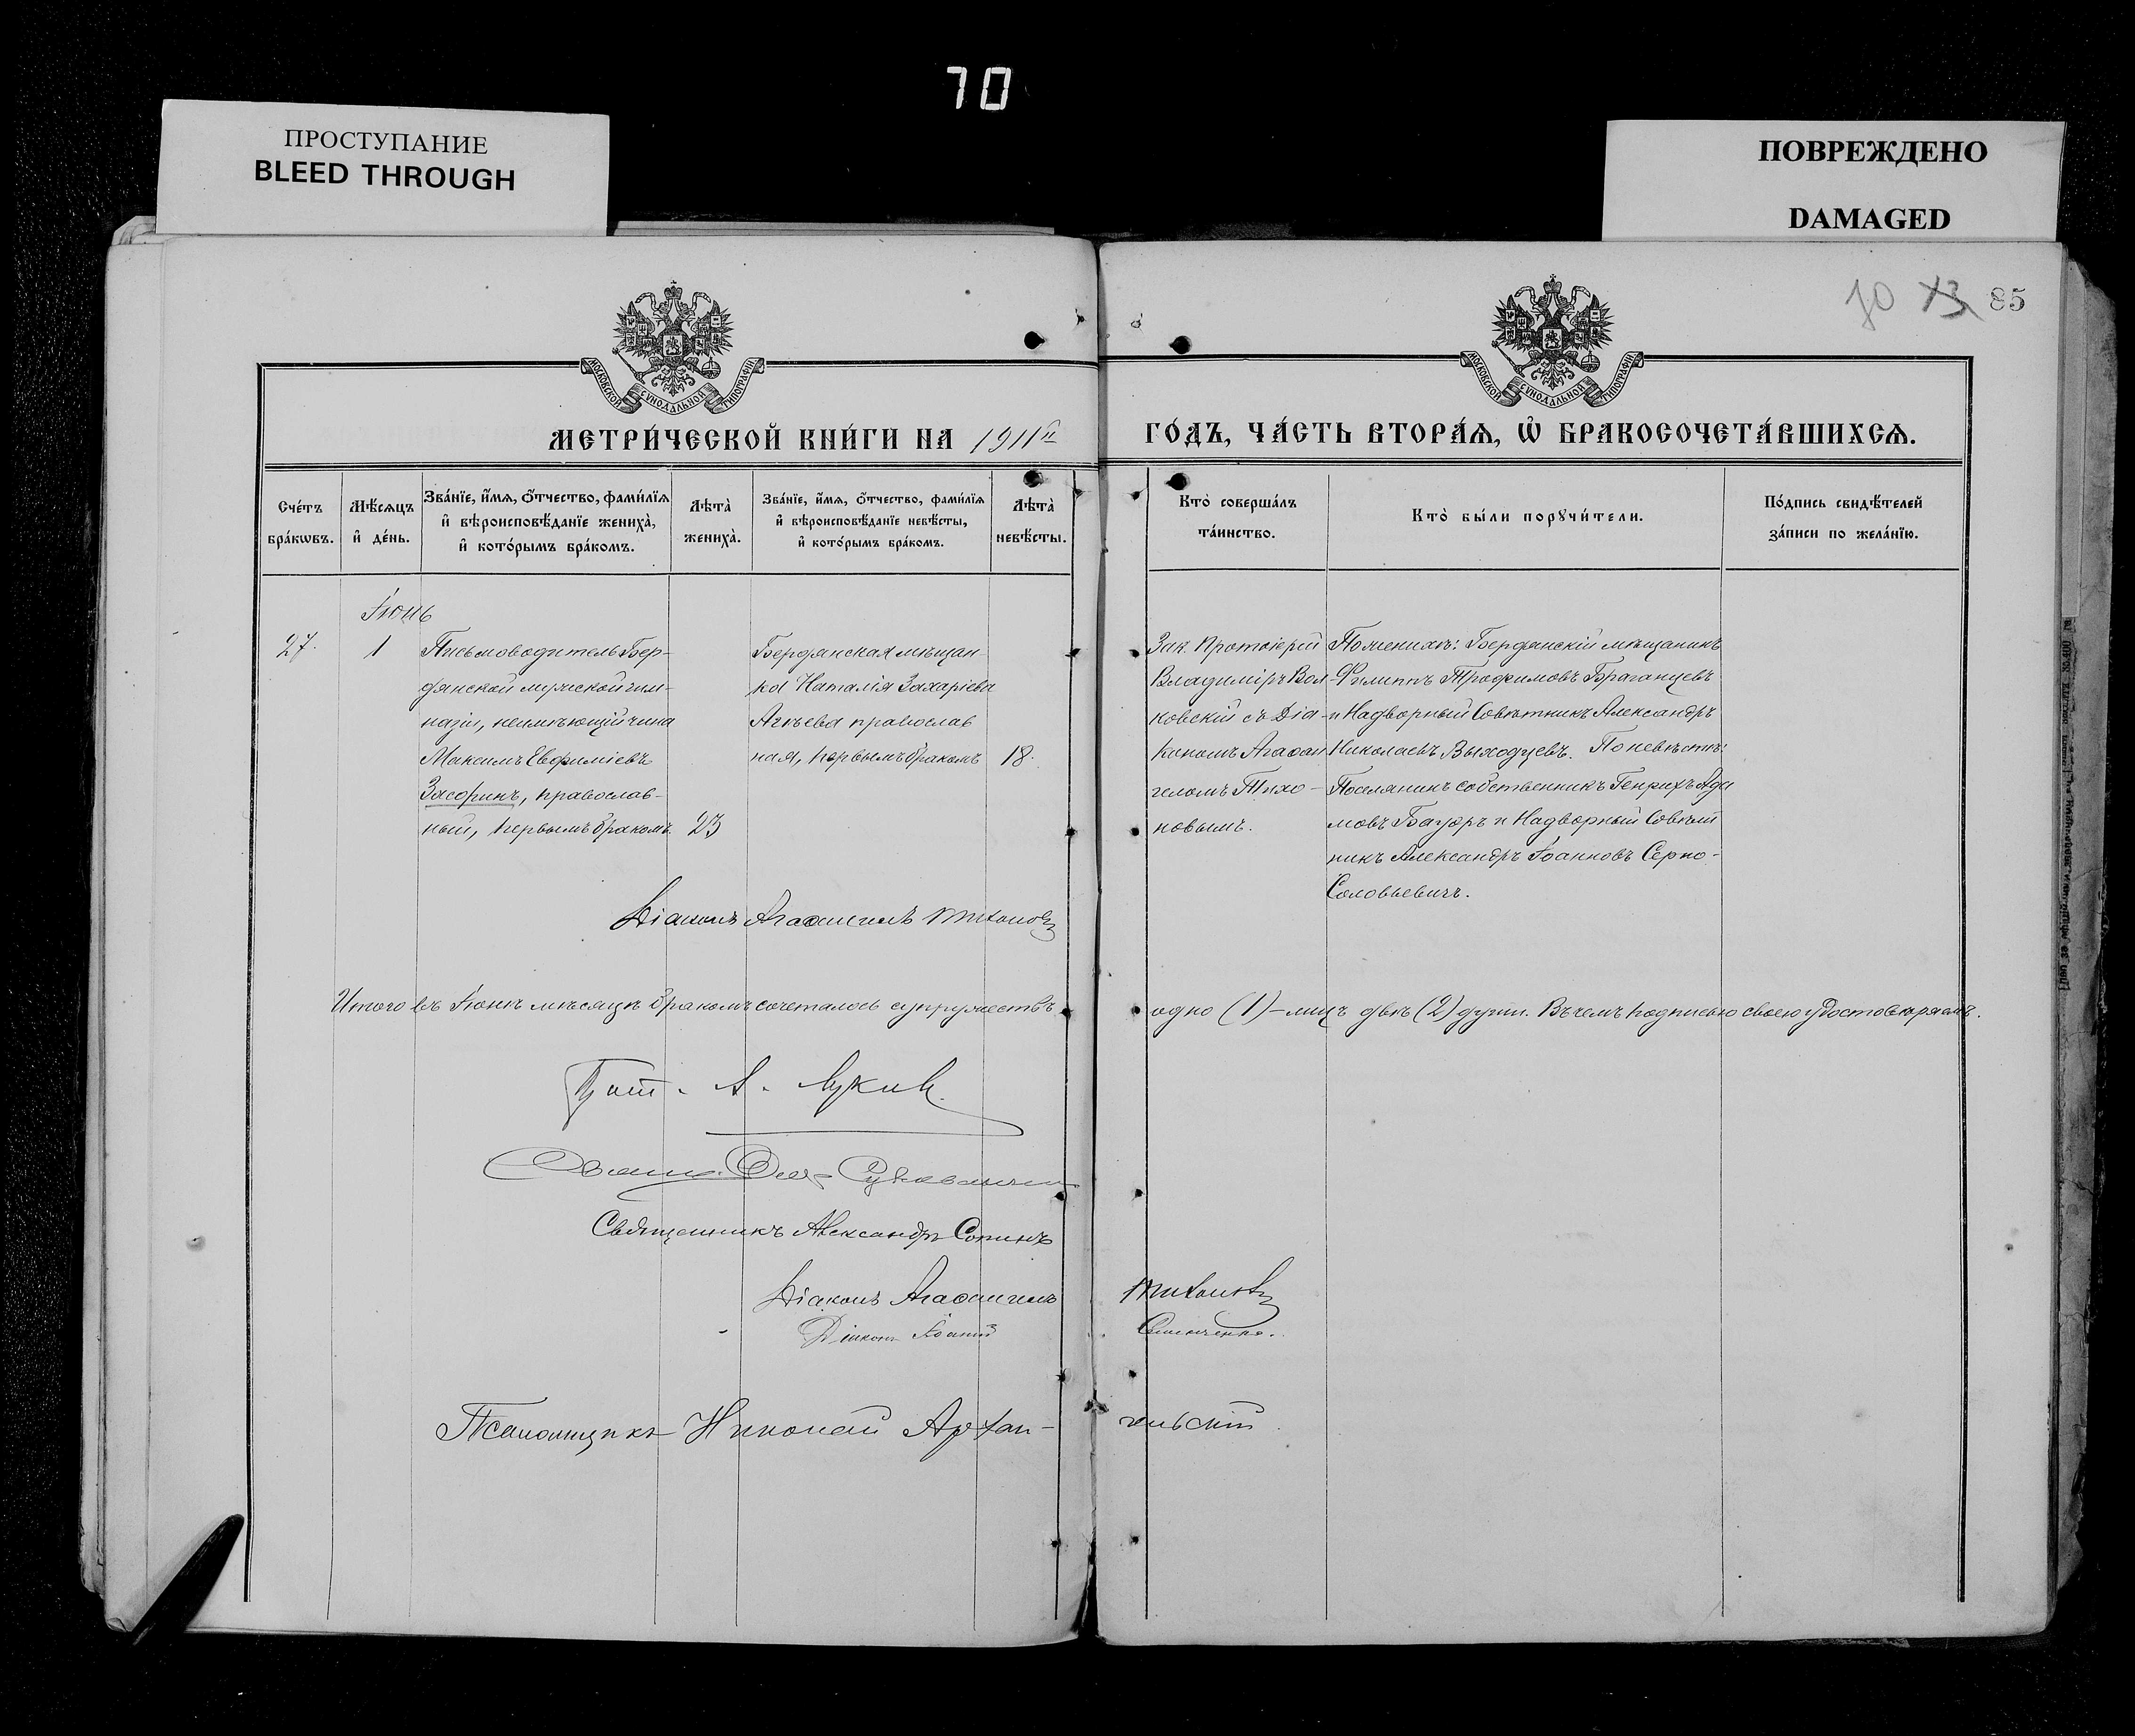 70
ПРОСТУПАНИЕ
BLEED THROUGH
ПОВРЕЖДЕНО
DAMAGED
70 73 85
МОСКОВСКОЙ СѴНОДАЛЬНОЙ ТИПОГРАФІИ
МОСКОВСКОЙ СѴНОДАЛЬНОЙ ТИПОГРАФІИ
МЕТРИ́ЧЕСКОЙ КНИ́ГИ НА 1911й
ГО́ДЪ, ЧА́СТЬ ВТОРА́Я, Ѡ҆ БРАКОСОЧЕТА́ВШИХСЯ.
Сче́тъ бра́кѡвъ.
Мѣ́сяцъ и҆ де́нь.
Зва́нїе, и҆́мя, ѻ҆́тчество, фами́лїя и҆ вѣроисповѣ́данїе жениха̀, и҆ кото́рымъ бра́комъ.
Лѣта̀ жениха̀.
Зва́нїе, и҆́мя, ѻ҆́тчество, фами́лїя и҆ вѣроисповѣ́данїе невѣ́сты, и҆ кото́рымъ бра́комъ.
Лѣта̀ невѣ́сты.
Кто̀ соверша́лъ та́инство.
Кто̀ бы́ли порꙋчи́тели.
По́дпись свидѣ́телей за́писи по жела́нїю.
Іюнь
27. 1
Письмоводитель Бер-
дянской мужской гим-
назіи, неимѣющій чина
Максимъ Евфиміевъ
Засоринъ, православ-
ный, первымъ бракомъ. 23
Бердянская мѣщан-
ка Наталія Захаріева
Агѣева православ
ная, первымъ бракомъ 18.
Зак. Протоіерій
Владиміръ Вол-
ковскій съ Діа-
кономъ Агаѳан
геломъ Тихо-
новымъ.
По женихѣ: Бердянскій мѣщанинъ
Филиппъ Трофимовъ Браганцевъ
и Надворный Совѣтникъ Александръ
Николаевъ Выходцевъ. По невѣстѣ:
Поселянинъ собственникъ Генрихъ Ада
мовъ Бауэръ и Надворный Совѣт
никъ Александръ Іоанновъ Серно-
Соловьевичъ.
Діаконъ Агаѳангелъ Тихоновъ
Итого въ Іюнѣ мѣсяцѣ бракомъ сочеталось супружествъ одно (1) – лицъ двѣ (2) души. Въ чемъ подписью своею удостовѣряемъ.
Прот. А.
Священникъ Александръ Сопинъ
Діаконъ Агаѳангелъ Тихоновъ
Діаконъ
Псаломщикъ Николай Архан-
гельскій